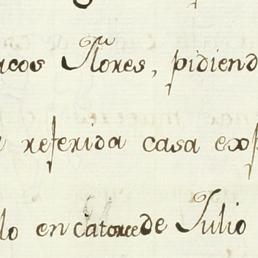 rcos Flores, pidiend
referida casa exp
lo en catorce de Julio